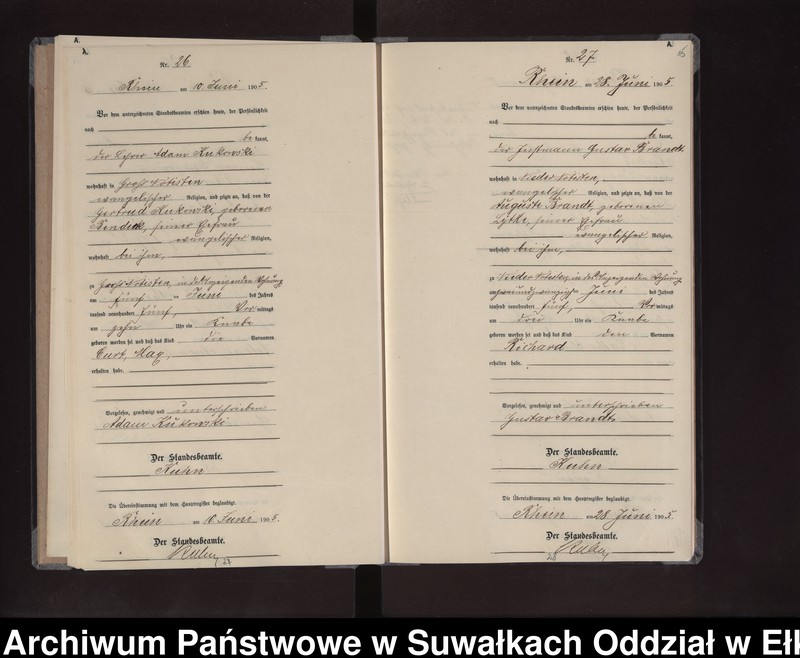 A.
Nr. 26
Rhein am 10. Juni 1905.
Vor dem unterzeichneten Standesbeamten erschien heute, der Persönlichkeit
nach
be kannt,
der Lehrer Adam Kukowski
wohnhaft in Groß Notisten
evangelischer Religion, und zeigte an, daß von der
Gertrud Kukowski, geborenen
seiner Ehefrau
evangelischer Religion,
wohnhaft bei ihm,
zu Groß Notisten, in der Wohnung
am fünf ten Juni des Jahres
tausend neunhundert fünf, Vor mittags
um zehn Uhr ein Knabe
geboren worden sei und daß das Kind die Vornamen
Curt, Max,
erhalten habe.
Vorgelesen, genehmigt und unterschrieben
Adam Kukowski
Der Standesbeamte.
Kuhn
Die Übereinstimmung mit dem Hauptregister beglaubigt.
Rhein am 10. Juni 1905.
Der Standesbeamte.
Kuhn
A.
Nr. 27
Rhein am 28. Juni 1905.
Vor dem unterzeichneten Standesbeamten erschien heute, der Persönlichkeit
nach
be kannt,
der Gustav Brandt
wohnhaft in Nieder Notisten,
evangelischer Religion, und zeigte an, daß von der
Auguste Brandt, geborenen
seiner Ehefrau
evangelischer Religion,
wohnhaft bei ihm,
zu Nieder Notisten, in der Wohnung
am Juni des Jahres
tausend neunhundert fünf, Vor mittags
um drei Uhr ein Knabe
geboren worden sei und daß das Kind den Vornamen
Richard
erhalten habe.
Vorgelesen, genehmigt und unterschrieben
Gustav Brandt
Der Standesbeamte.
Kuhn
Die Übereinstimmung mit dem Hauptregister beglaubigt.
Rhein am 28. Juni 1905.
Der Standesbeamte.
Kuhn
Archiwum Państwowe w Suwałkach Oddział w Ełk